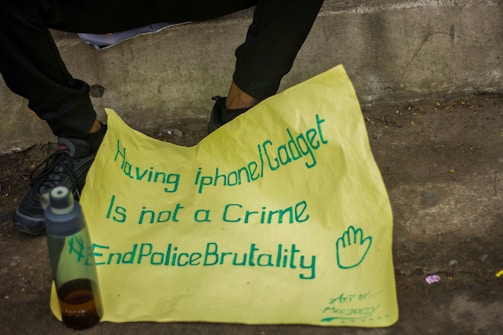 Having iphone/Gadget
Is not a Crime
#EndPoliceBrutality